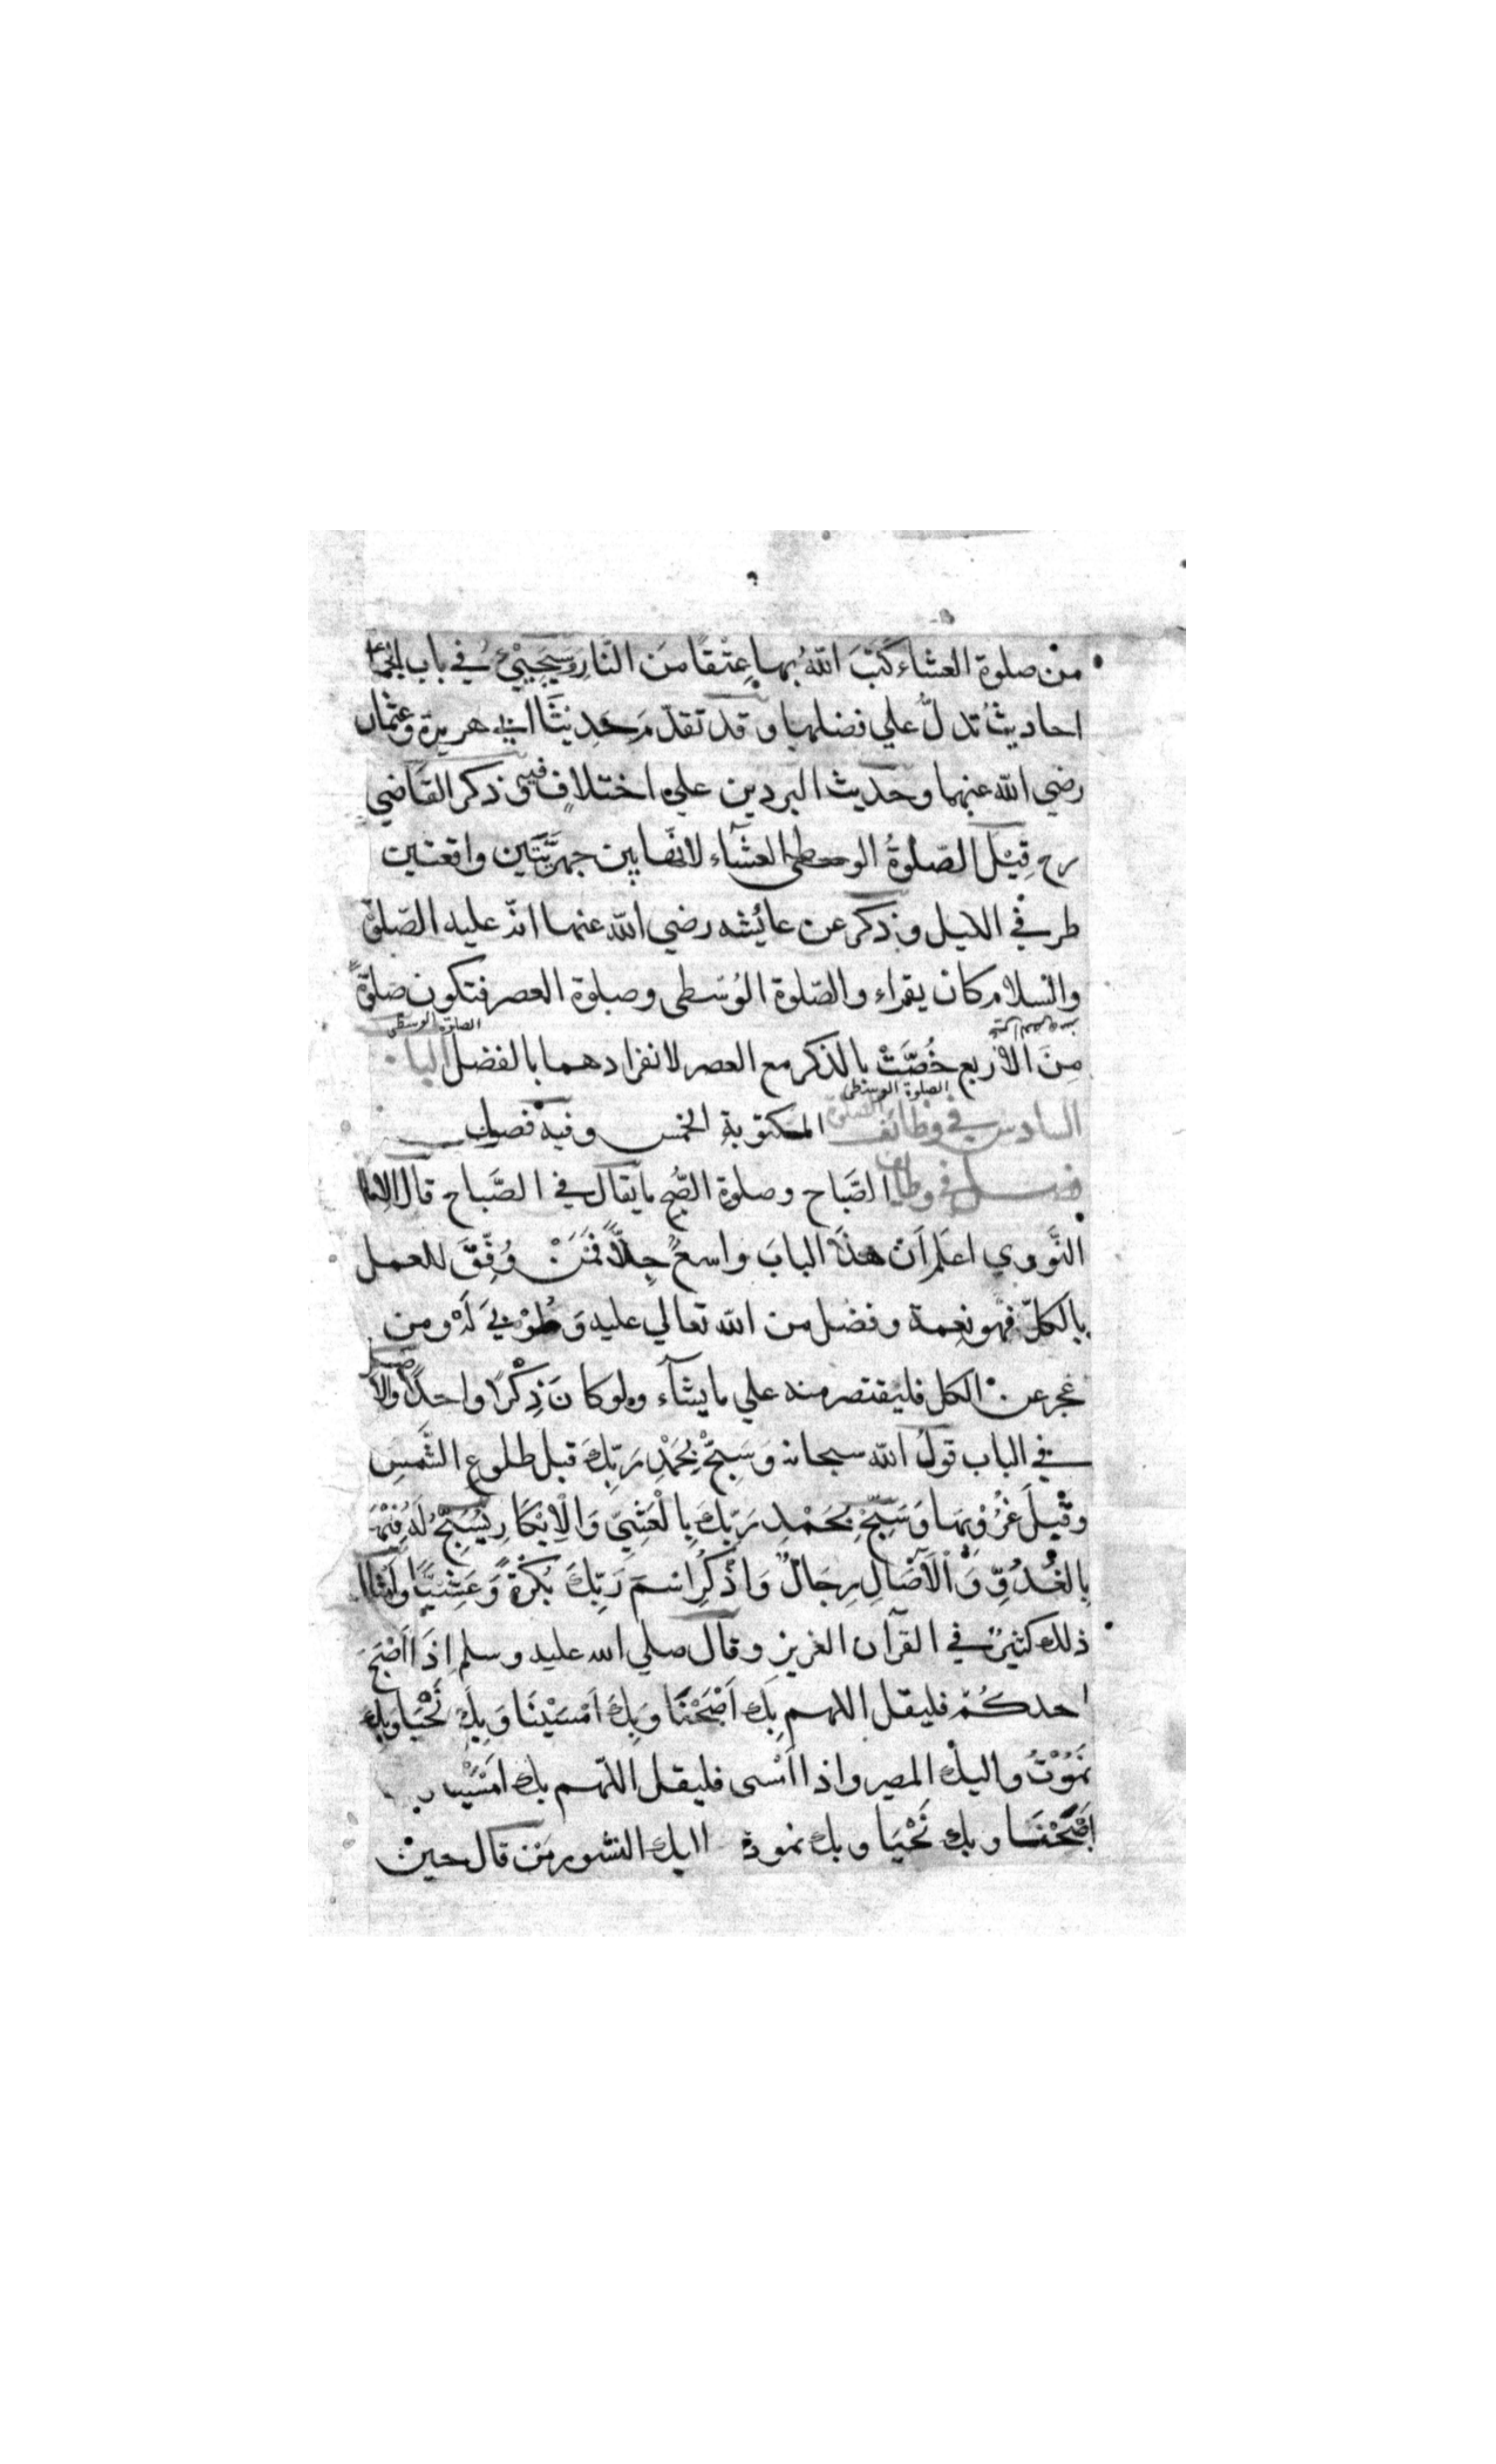 من صلوة العشاء كَتَبَ اللّٰهُ بها عِتْقًا مِنَ النَّارِ وَسَيَجِيْئُ في باب الجماعة
احاديثُ تدلُّ علي فضلها وقد تقدّمَ حَدِيْثَا ابي هريرة وعثمان
رضي الله عنهما وحديث البردين علي اختلافٍ فيه وذكر القاضي
رح قِيْلَ الصّلوةُ الوسطى العشآء لانّها بين جهريَّتَين واقعتين
طرفي الليل وذكر عن عائشه رضي الله عنها انّه عليه الصّلوة
والسلام كان يقراء والصّلوة الوُسْطى وصلوة العصر فتكون صلوةً
الصلوة الوسطى
مِنَ الأَرْبع خُصَّتْ بالذكر مع العصر لانفرادهما بالفضل الباب
الصلوة الوسطى
السادس في وظائف الصلوة المكتوبةِ الخمس وفيه فصول
فصل في وظايف الصَّباح وصلوة الصُّبح ما يقال في الصَّباح قال الامام
النَّووي اعلم اَن هذا البابَ واسعٌ جِدًّا فَمَنْ وُفِّقَ للعمل
بالكلّ فهو نِعمة وفضل من الله تعالي عليه وَطُوْبٰي لَهُ ومن
عجز عن الكل فليقتصر منه علي ما يشآء ولو كانَ ذِكْرًا واحدًا والاصل
في الباب قولُ اللّٰه سبحانه وَسَبِّحْ بِحَمْدِ رَبِّكَ قبل طلوعِ الشَّمسِ
وقَبْلَ غُرُوْبِهَا وَسَبِّحْ بِحَمْدِ رَبِّكَ بِالْعَشِيِّ وَالْاِبْكَارِ يُسَبِّحُ لَهُ فِيْهَا
بِالْغُدُوِّ وَالْاٰصَالِ رِجَالٌ وَاذْكُرِ اسْمَ رَبِّكَ بُكْرَةً وَعَشِيًّا وامثال
ذلك كثيرٌ في القرآن العزيز وقال صلي الله عليه وسلم اِذَا اَصْبَحَ
احدكُمْ فليقل اللهم بِكَ اَصْبَحْنَا وَبِكَ اَمْسَيْنَا وَبِكَ نَحْيَا وَبِكَ
نَمُوْتُ واليك المصير واذا اَمْسى فليقل اللّهم بك امْسَيْنا
اَصْبَحْنَا وبك نَحْيَا وبك نموت اليك النشور مَن قال حين